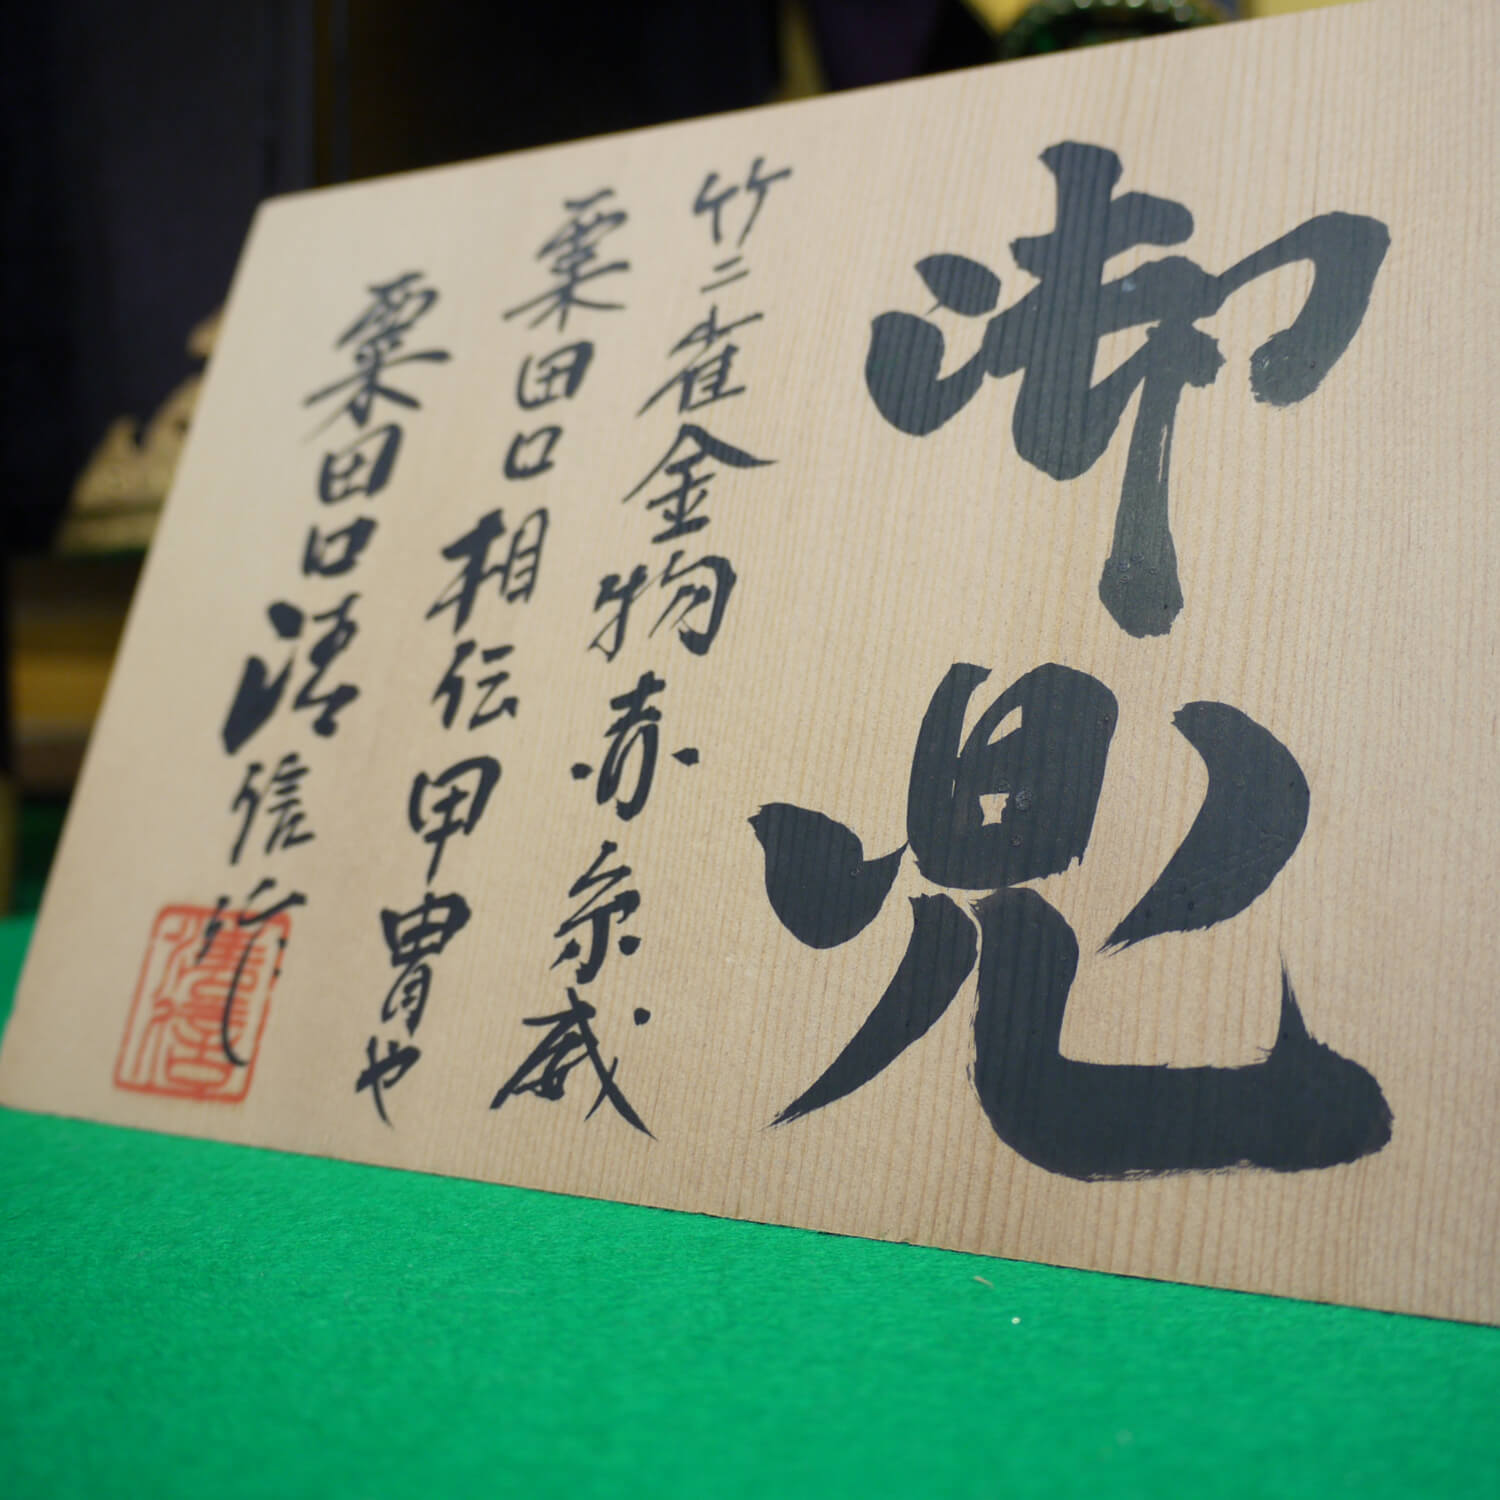 御兜
竹ニ雀金物赤糸威
粟田口相伝甲冑や
粟田口清信作